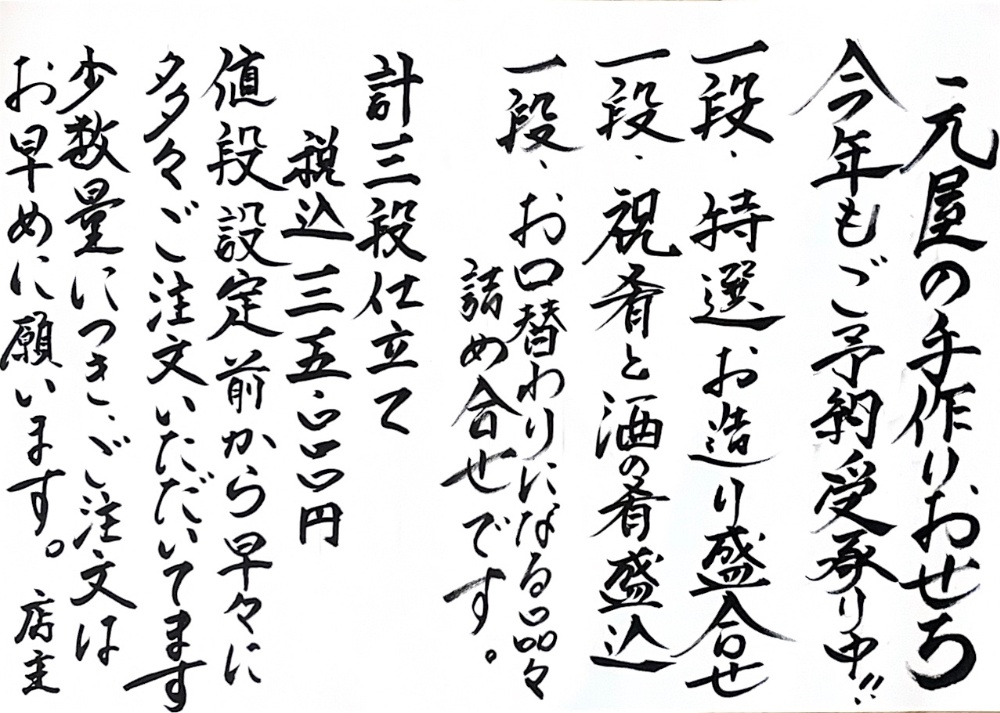 元屋の手作りおせち
今年もご予約受承り中!!
一段、特選お造り盛合せ
一段、祝肴と酒の肴盛込
一段、お口替わりになる品々
詰め合せです。
計三段仕立て
税込三五、〇〇〇円
値段設定前から早々に
多々ご注文いただいてます
少数量につき、ご注文は
お早めに願います。 店主